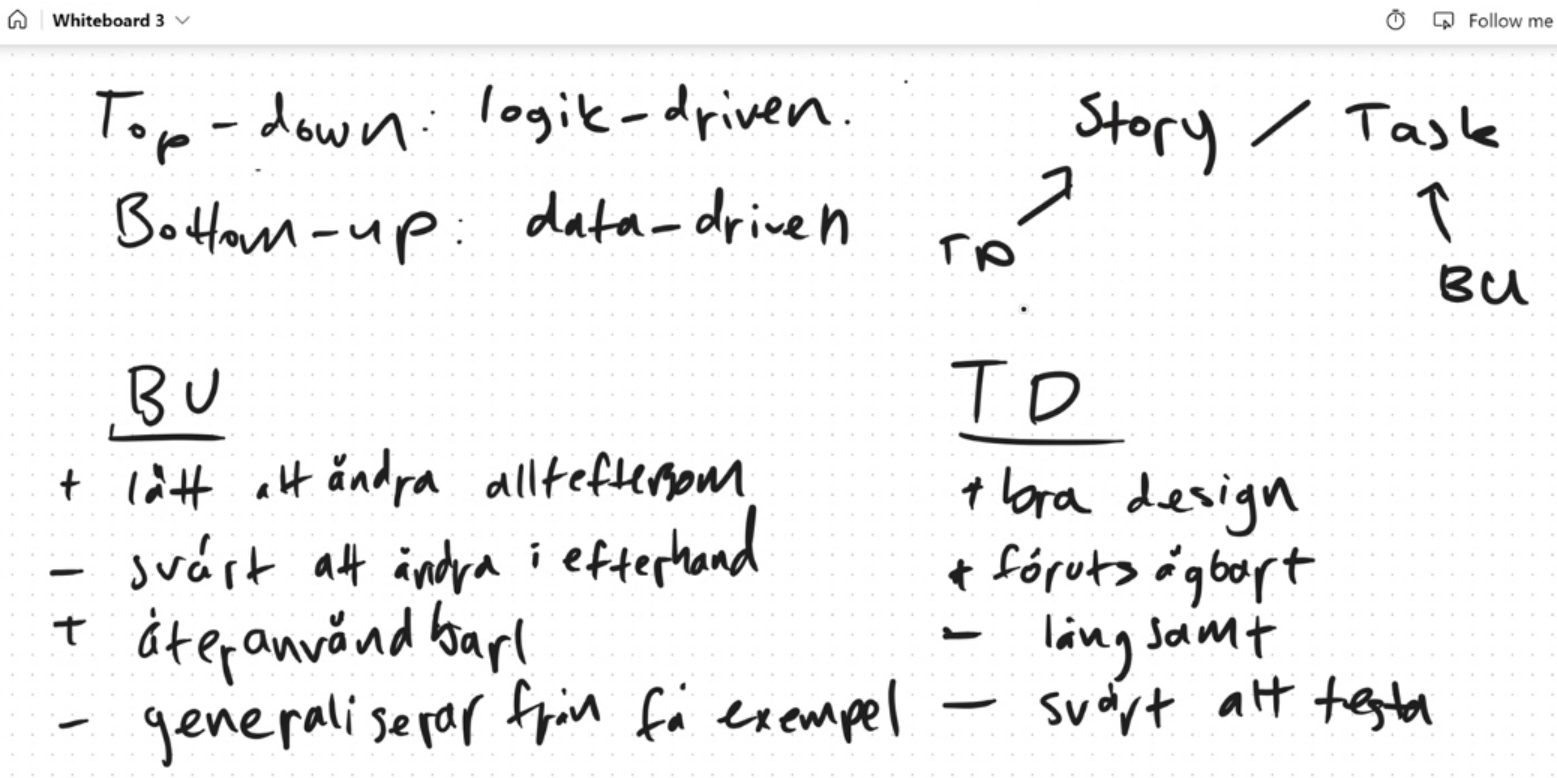 Whiteboard 3
Follow me
Top-down: logik-driven.
Bottom-up: data-driven
Story / Task
TD
BU
BU
+ lätt att ändra allteftersom
- svårt att ändra i efterhand
+ återanvändbart
- generaliserar från få exempel
TD
+ bra design
+ förutsägbart
- långsamt
- svårt att testa